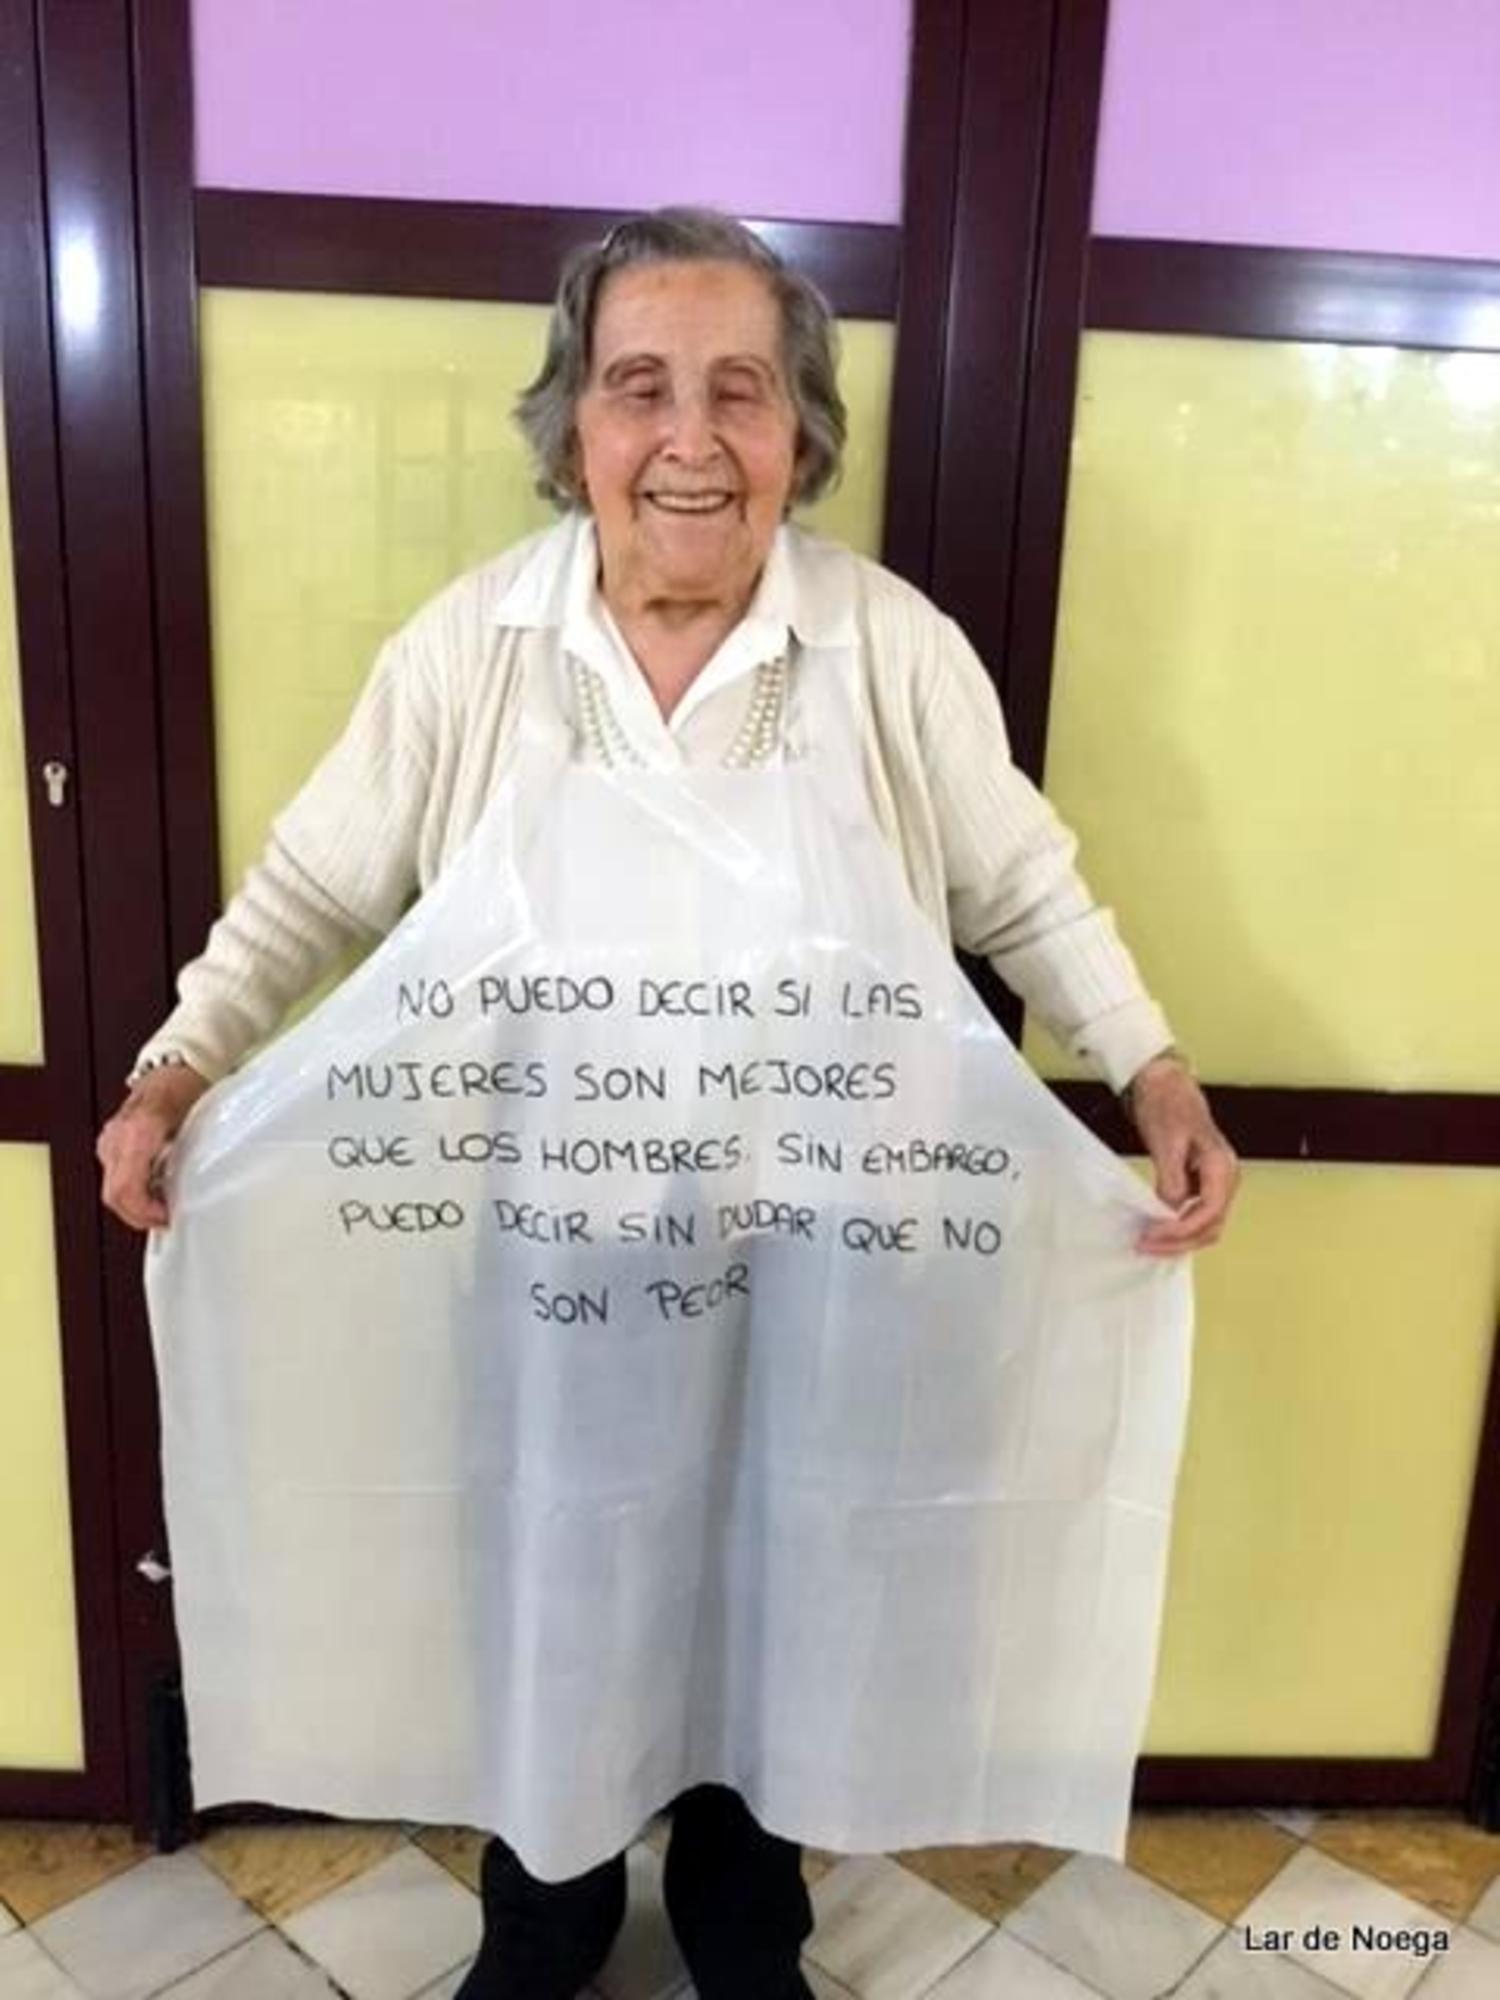 NO PUEDO DECIR SI LAS
MUJERES SON MEJORES
QUE LOS HOMBRES. SIN EMBARGO,
PUEDO DECIR SIN DUDAR QUE NO
SON PEOR
Lar de Noega